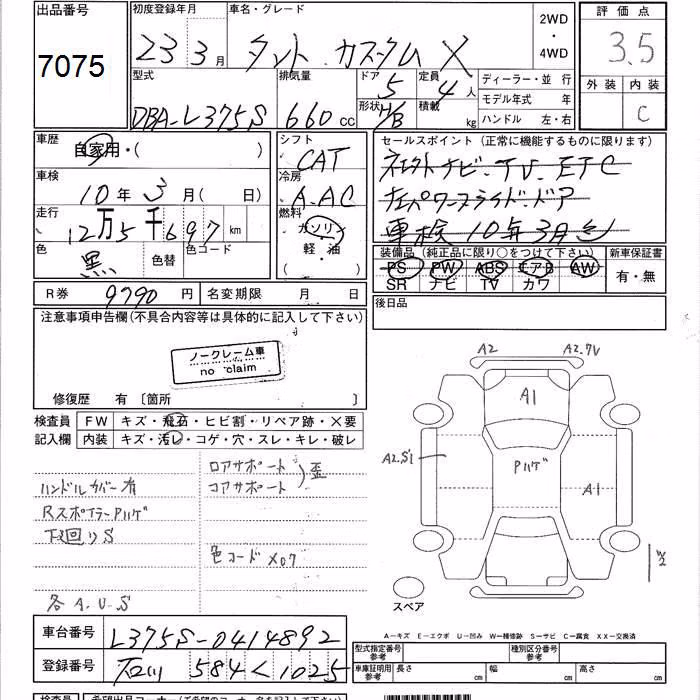 出品番号
7075
初度登録年月
23年3月
車名・グレード
タント カスタム X
2WD
・
4WD
評価点
3.5
外装
内装
C
型式
DBA-L375S
排気量
660 cc
ドア
5
形状
H/B
定員
4人
積載
kg
ディーラー・並行
モデル年式 年
ハンドル 左・右
車歴
自家用・( )
車検
10年3月(日)
走行
12万5千697km
色
黒
色替
色コード
シフト
CAT
冷房
A.AC
燃料
ガソリン
軽・油
( )
セールスポイント (正常に機能するものに限ります)
ナビ・TV・ETC
パワースライドドア
車検10年3月
装備品 (純正品に限り○をつけて下さい)
PS PW ABS エアB AW
SR ナビ TV カワ
新車保証書
有・無
R券
9790円
名変期限 月 日
後日品
注意事項申告欄(不具合内容等は具体的に記入して下さい)
ノークレーム車
no claim
修復歴 有 〔箇所 〕
検査員
記入欄
FW
キズ・飛石・ヒビ割・リペア跡・X要
内装
キズ・汚レ・コゲ・穴・スレ・キレ・破レ
ロアサポート
コアサポート
歪
ハンドルカバー有
RスポイラーPハゲ
下廻りS
色コード X07
各A.U.S
A2
A2.7V
A1
Pハゲ
A2.S1
A1
W2
スペア
A－キズ E－エクボ U－凹み W－補修跡 S－サビ C－腐食 XX－交換済
車台番号
L375S-0414892
登録番号
石川 584 く 1025
型式指定番号
参考
種別区分番号
参考
車庫証明用
参考
長さ
幅
高さ
cm